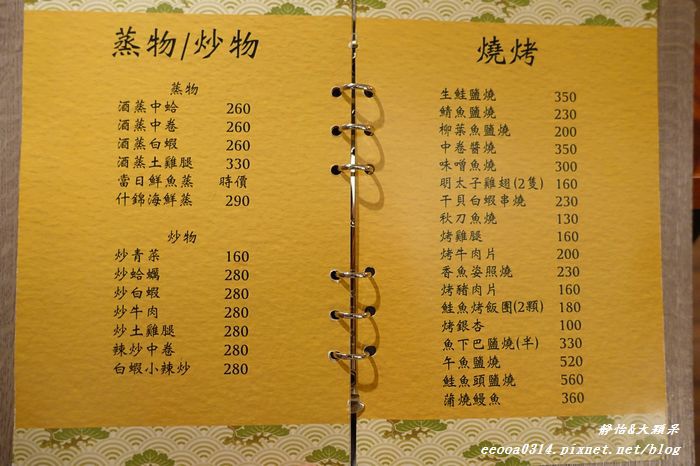 蒸物/炒物
蒸物
酒蒸中蛤 260
酒蒸中卷 260
酒蒸白蝦 260
酒蒸土雞腿 330
當日鮮魚蒸 時價
什錦海鮮蒸 290
炒物
炒青菜 160
炒蛤蠣 280
炒白蝦 280
炒牛肉 280
炒土雞腿 280
辣炒中卷 280
白蝦小辣炒 280
燒烤
生鮭鹽燒 350
鯖魚鹽燒 230
柳葉魚鹽燒 200
中卷醬燒 350
味噌魚燒 300
明太子雞翅(2隻) 160
干貝白蝦串燒 230
秋刀魚燒 130
烤雞腿 160
烤牛肉片 200
香魚姿照燒 230
烤豬肉片 160
鮭魚烤飯團(2顆) 180
烤銀杏 100
魚下巴鹽燒(半) 330
午魚鹽燒 520
鮭魚頭鹽燒 560
蒲燒鰻魚 360
靜怡&大顆呆
ecooa0314.pixnet.net/blog